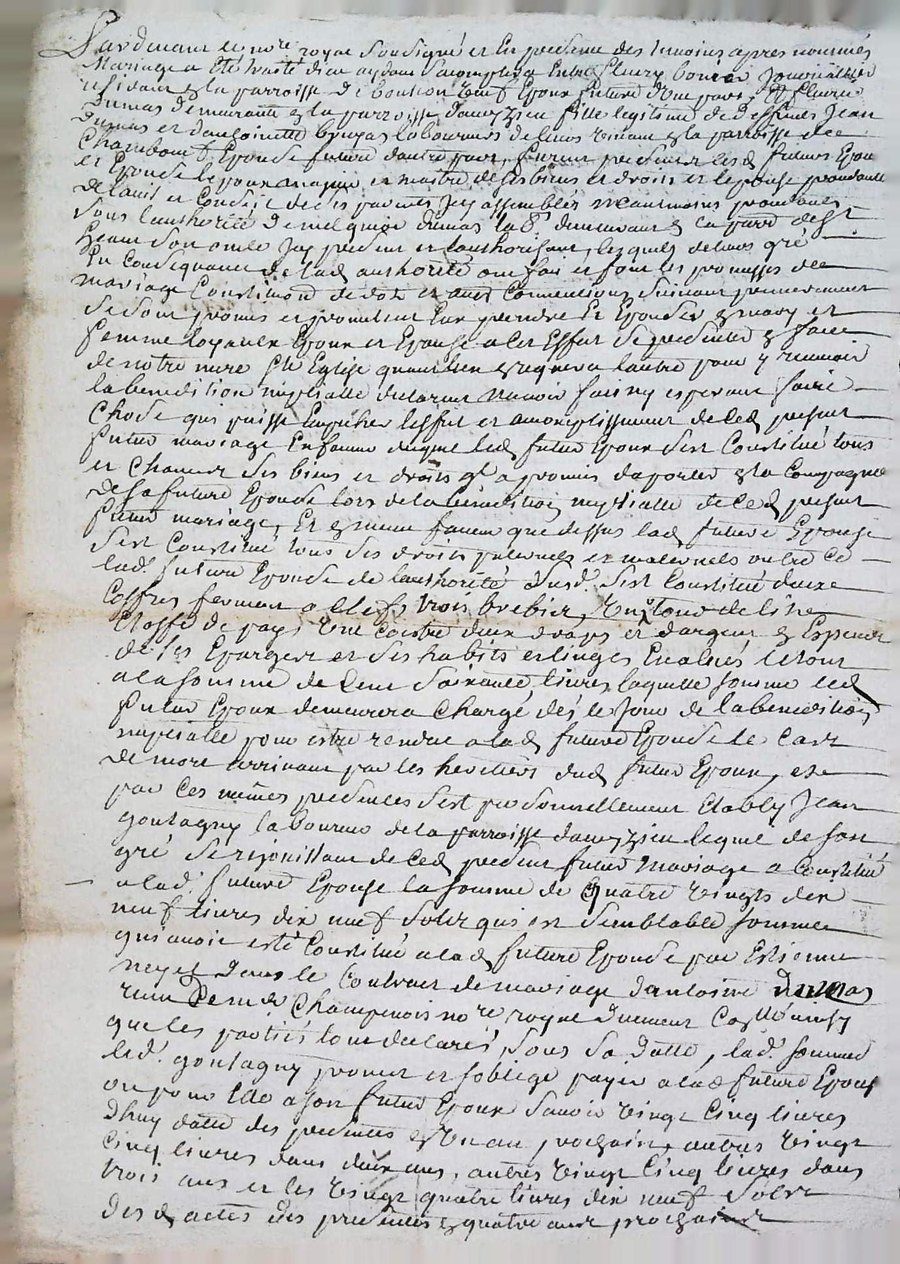 Pardevant le no.re royal Soussigné et En presence des temoins apres nommés
Mariage a été traité dieu aydant Saccomplira Entre Fleury
residant en la parroisse de Epoux futur d'une part, Et Fleurie
Dumas demeurante en la parroisse fille legitime de deffunts Jean
Dumas et d'antoinette laboureurs de leurs vivant en la parroisse de
Epouse future dautre part, furent presents lesd. futurs Epoux
et Epouse le poux majeur et maitre de ses biens et droits et lepouse procedante
de lavis et Conseil de ses parents Icy assemblés neantmoins procedant
Sous l'authorité de Dumas demeurant
Son oncle Icy present et l'authorisant, lesquels de leurs gré
En Consequance de lad. authorité ont fait et font les promesses de
mariage Constitutions de dot et autres Conventions Suivant premierement
Se sont promis et promettent Eux prendre Et Epouser en mary et
femme loyaux Epoux et Epouse a cet Effet Se presenter en face
de notre mere Ste Eglise quand lun en requerra lautre pour y recevoir
la benediction nuptialle declarant navoir fait ny esperant faire
Chose qui puisse Empecher leffet et accomplissement de Ced. present
futur mariage En faveur duquel led. futur Epoux Sest Constitué tous
et Chacuns Ses biens et droits a promis daporter en la Compagnie
de Sa future Epouse lors de la benediction nuptialle de Ced. present
futur mariage, Et en meme faveur que dessus lad. future Epouse
Sest Constitué tous Ses droits paternels et maternels outre Ce
lad. future Epouse de lauthorité susd. Sest Constitué deux
Coffres fermant a Clefs trois brebies,
Etoffe de pays Une Coitre deux draps et dargent en Especes
de Ses Epargnes et Ses habits et linges Evalués le tout
a la somme de Cent Soixante livres laquelle somme led.
futur Epoux demeurera Chargé des le Jour de la benediction
nuptialle pour estre rendue a lad. future Epouse le Cas
de mort arrivant par les heritiers dud. futur Epoux, et
par Ces mêmes presences Sest personnellement Etably Jean
goutagny laboureur de la parroisse lequel de son
gré Se rejouissant de Ced. present futur Mariage a Constitué
a lad. future Epouse la somme de quatre vingts dix
neuf livres dix neuf Sols qui est Semblable somme
qui avoit esté Constitué a lad. future Epouse par Estienne
neyet dans le Contract de mariage dantoine Dumas
receu Champenois no.re royal
que les parties l'ont declarés, Sous Sa datte, lad. somme
led. goutagny promet et soblige payer a lad. future Epouse
ou pour Elle a son futur Epoux Savoir vingt Cinq livres
dhuy datte des presentes en Un an prochain, autres vingt
Cinq livres dans deux ans, autres vingt Cinq livres dans
trois ans et les vingt quatre livres dix neuf Sols
desd. actes des presentes en quatre ans prochains